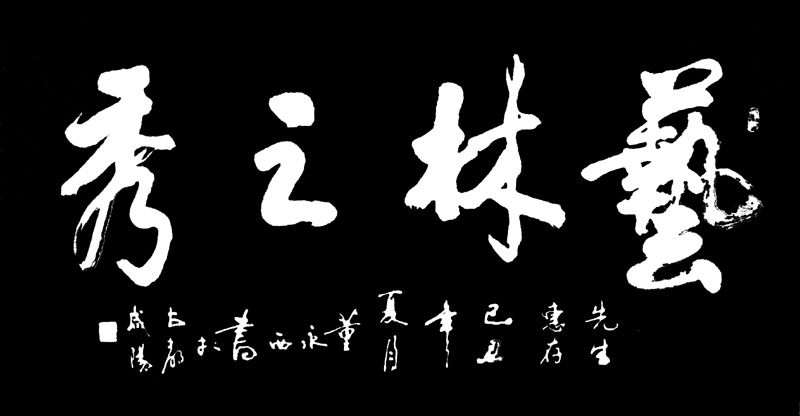 藝林之秀
先生
惠存
己丑
年
夏月
董永西書於
古都
咸陽